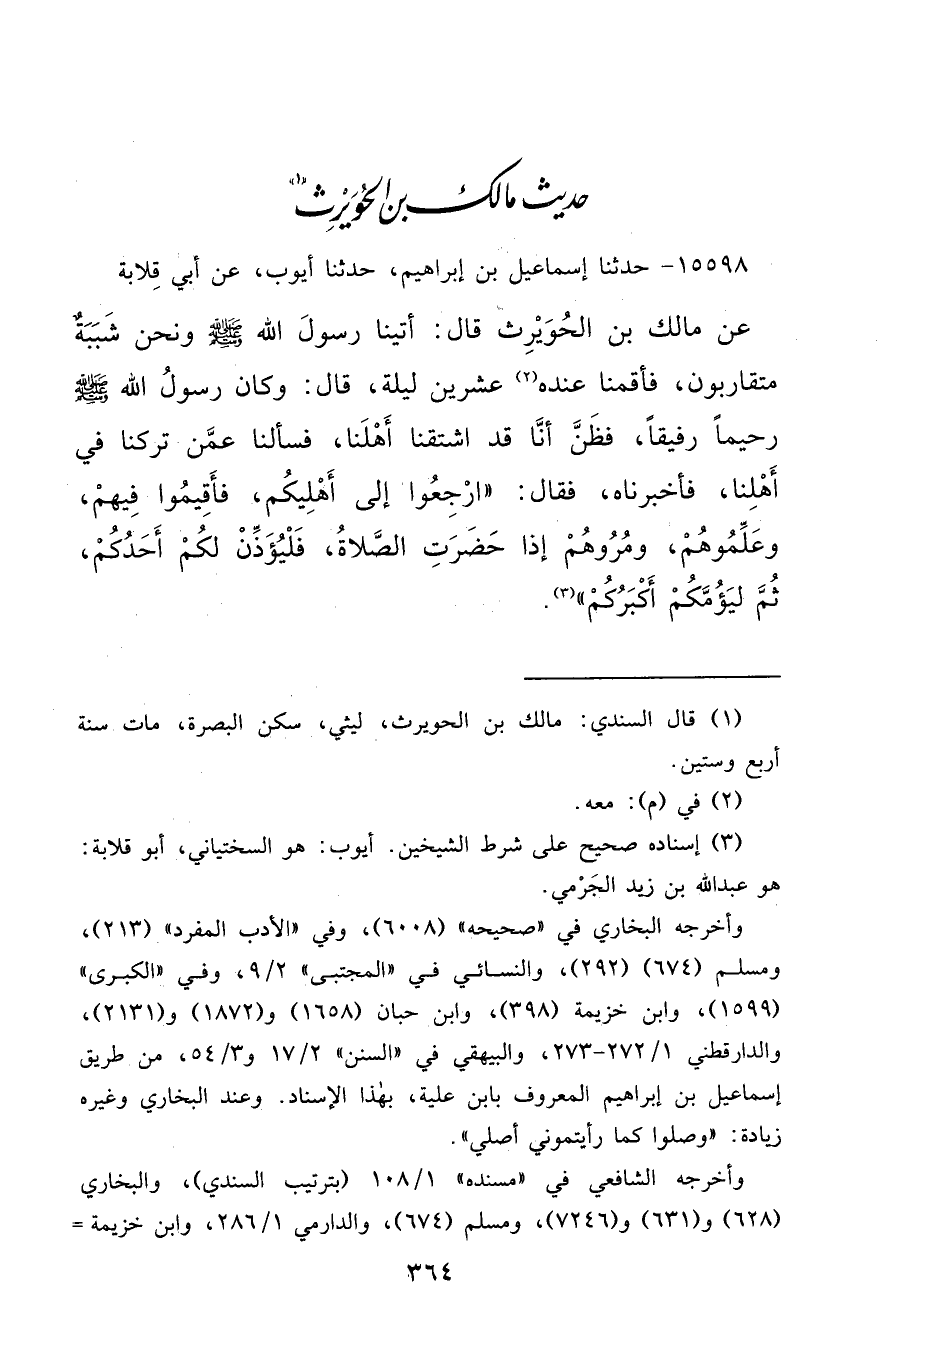 حديث مالك بن الحُوَيْرِث «١»
١٥٥٩٨- حدثنا إسماعيل بن إبراهيم، حدثنا أيوب، عن أبي قِلابة
عن مالك بن الحُوَيْرِث قال: أتينا رسولَ الله ﷺ ونحن شَبَبَةٌ
متقاربون، فأقمنا عنده(٢) عشرين ليلة، قال: وكان رسولُ الله ﷺ
رحيماً رفيقاً، فظَنَّ أنَّا قد اشتقنا أَهْلَنا، فسألنا عمَّن تركنا في
أَهْلِنا، فأخبرناه، فقال: «ارْجِعُوا إلى أَهْلِيكُم، فأَقِيمُوا فِيهِمْ،
وعَلِّمُوهُمْ، ومُرُوهُمْ إذا حَضَرَتِ الصَّلاةُ، فَلْيُؤَذِّنْ لكُمْ أَحَدُكُمْ،
ثُمَّ ليَؤُمَّكُمْ أَكْبَرُكُمْ»(٣).
(١) قال السندي: مالك بن الحويرث، ليثي، سكن البصرة، مات سنة
أربع وستين.
(٢) في (م): معه.
(٣) إسناده صحيح على شرط الشيخين. أيوب: هو السختياني، أبو قلابة:
هو عبدالله بن زيد الجَرْمي.
وأخرجه البخاري في «صحيحه» (٦٠٠٨)، وفي «الأدب المفرد» (٢١٣)،
ومسلم (٦٧٤) (٢٩٢)، والنسائي في «المجتبى» ٩/٢، وفي «الكبرى»
(١٥٩٩)، وابن خزيمة (٣٩٨)، وابن حبان (١٦٥٨) و(١٨٧٢) و(٢١٣١)،
والدارقطني ٢٧٢/١-٢٧٣، والبيهقي في «السنن» ١٧/٢ و٥٤/٣، من طريق
إسماعيل بن إبراهيم المعروف بابن علية، بهٰذا الإسناد. وعند البخاري وغيره
زيادة: «وصلوا كما رأيتموني أصلي».
وأخرجه الشافعي في «مسنده» ١٠٨/١ (بترتيب السندي)، والبخاري
(٦٢٨) و(٦٣١) و(٧٢٤٦)، ومسلم (٦٧٤)، والدارمي ٢٨٦/١، وابن خزيمة =
٣٦٤